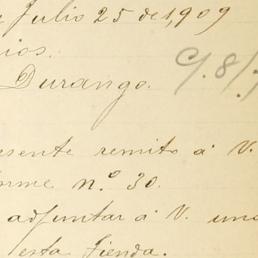 Julio 25 de 1,909
ios.
Durango.
C/. 8/
esente remito á V.
nº 30.
adjuntar á V. una
esta Tienda.